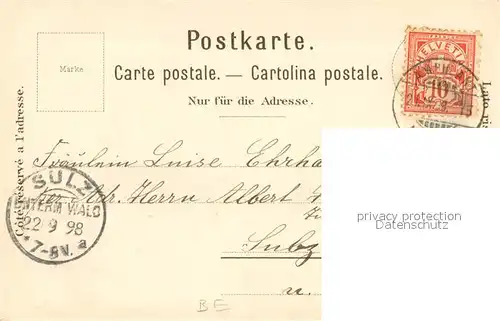 Postkarte.
Marke
Carte postale. — Cartolina postale.
Nur für die Adresse.
Côté réservé à l'adresse.
Lato ris
HELVETIA
10
Fräulein Luise Ehrha
per Adr. Herrn Albert
Sulz
u.
SULZ
UNTERM WALD
22 9 98
7-8V. a
BE
privacy protection
Datenschutz